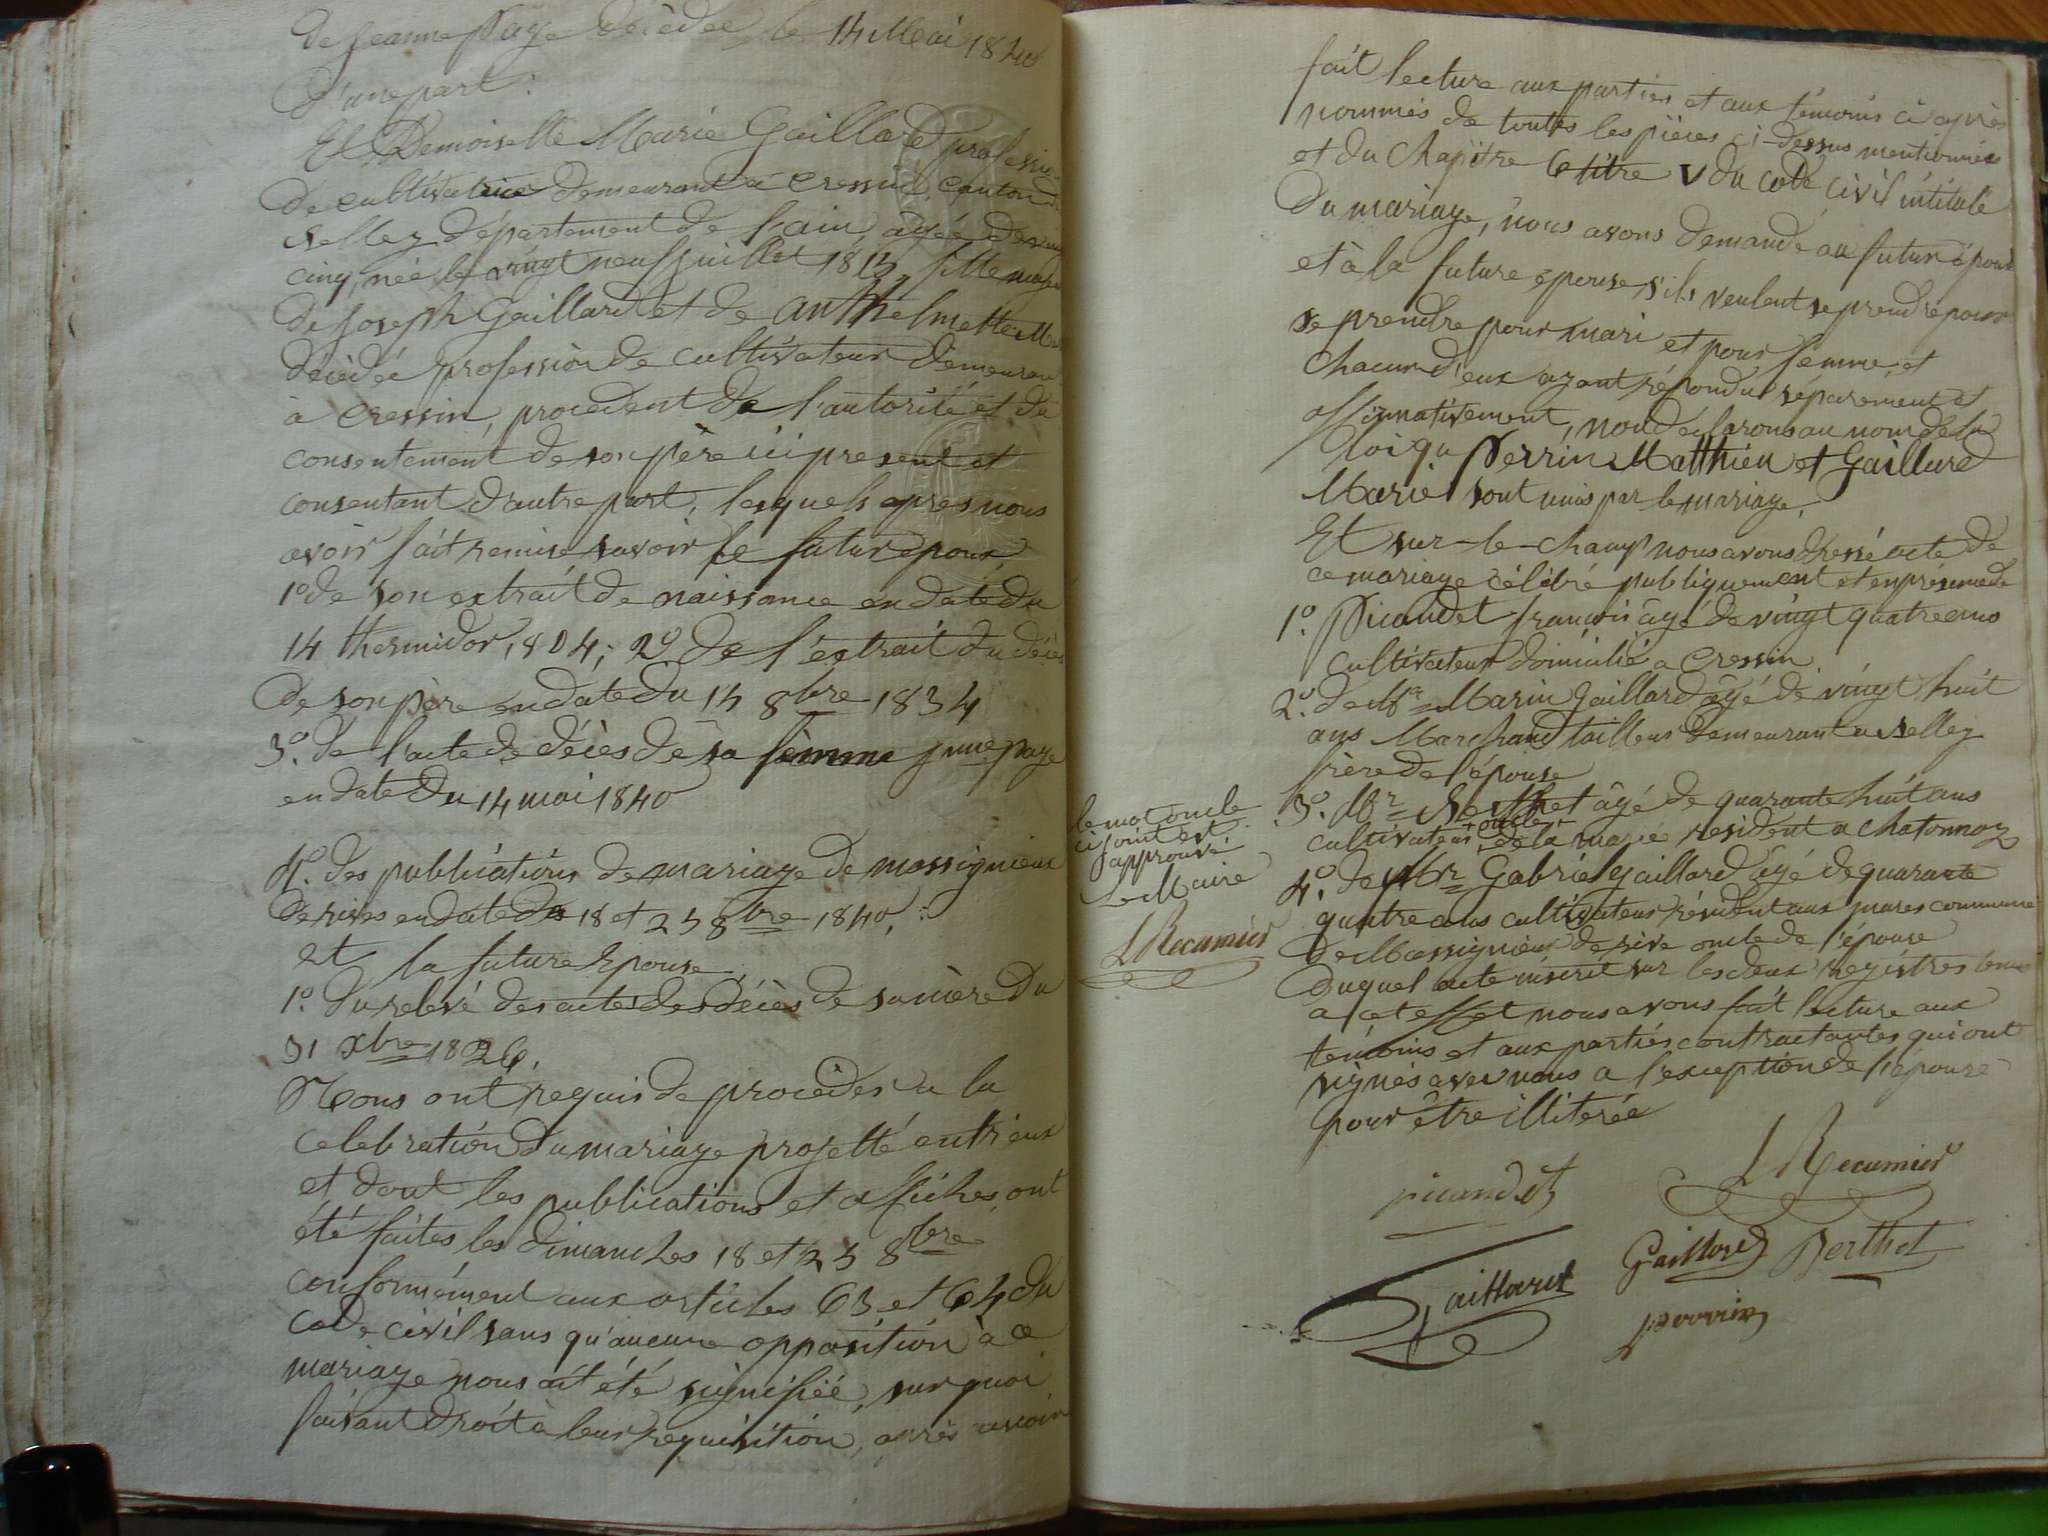 de Jeanne Page décédée le 14 Mai 1840
d'une part :
Et Demoiselle Marie Gaillard profession
de cultivatrice demeurant à Cressin, canton de
Belley département de l'ain, agée de vingt
cinq, née le vingt neuf juillet 1815, fille majeure
de Joseph Gaillard et de Anthelmette
décédée profession de cultivateur demeurant
à Cressin, procédent de l'autorité et du
consentement de son père ici present et
consentant d'autre part, lesquels apres nous
avoir fait remise savoir le futur epoux,
1º de son extrait de naissance en date du
14 thermidor, 1804; 2º de l'extrait du décès
de son père en date du 14 8bre 1834
3º. de l'acte de décès de sa femme jnne page
en date du 14 mai 1840
4º. des publications de mariage de massignieux
de rives en date du 18 et 25 8bre 1840,
et la future Epouse
1º. du relevé des actes des décès de sa mère du
31 xbre 1826.
Nous ont requis de procéder a la
celebration du mariage projetté entr'eux
et dont les publications et affiches, ont
été faites les dimanches 18 et 25 8bre
conformément aux articles 63 et 64 du
code civil sans qu'aucune opposition à ce
mariage nous ait été signifiée, sur quoi
faisant droit à leur requisition, après avoir
fait lecture aux parties et aux témoins ci après
nommés de toutes les pièces ci-dessus mentionnées
et du Chapitre 6 titre V du code civil intitulé
Du mariage, nous avons demandé au futur époux
et à la future epouse, s'ils veulent se prendre pour
se prendre pour mari et pour femme, et
chacun d'eux ayant répondu séparément et
affirmativement, nou declarons au nom de la
loi qu Perrin Matthieu et Gaillard
Marie sont unis par le mariage.
Et sur-le-champ nous avons dressé acte de
ce mariage célébré publiquement et en présence de
1º. Picandet françois âgé de vingt quatre ans
cultivateur domicilié a Cressin
2º. de Mr Marin Gaillard âgé de vingt huit
ans Marchand tailleur demeurant a Belley
frère de l'épouse
3º. Mr Berthet âgé de quarante huit ans
oncle
cultivateur, de la mariée resident a Chatonnoz
4º. de Mr Gabriel gaillard âgé de quarante
quatre ans cultivateur résident aux mures commune
de Massignieux de rive oncle de l'épouse
duquel acte inscrit sur les deux registres tenus
a cet effet nous avons fait lecture aux
témoins et aux parties contractantes qui ont
signés avec nous a l'exception de l'épouse
pour être illiterée
le mot oncle
ci joint est
approuvé
Le Maire
L Recamier
picandet
L Recamier
Gaillard
Gaillard
Berthet
perrin